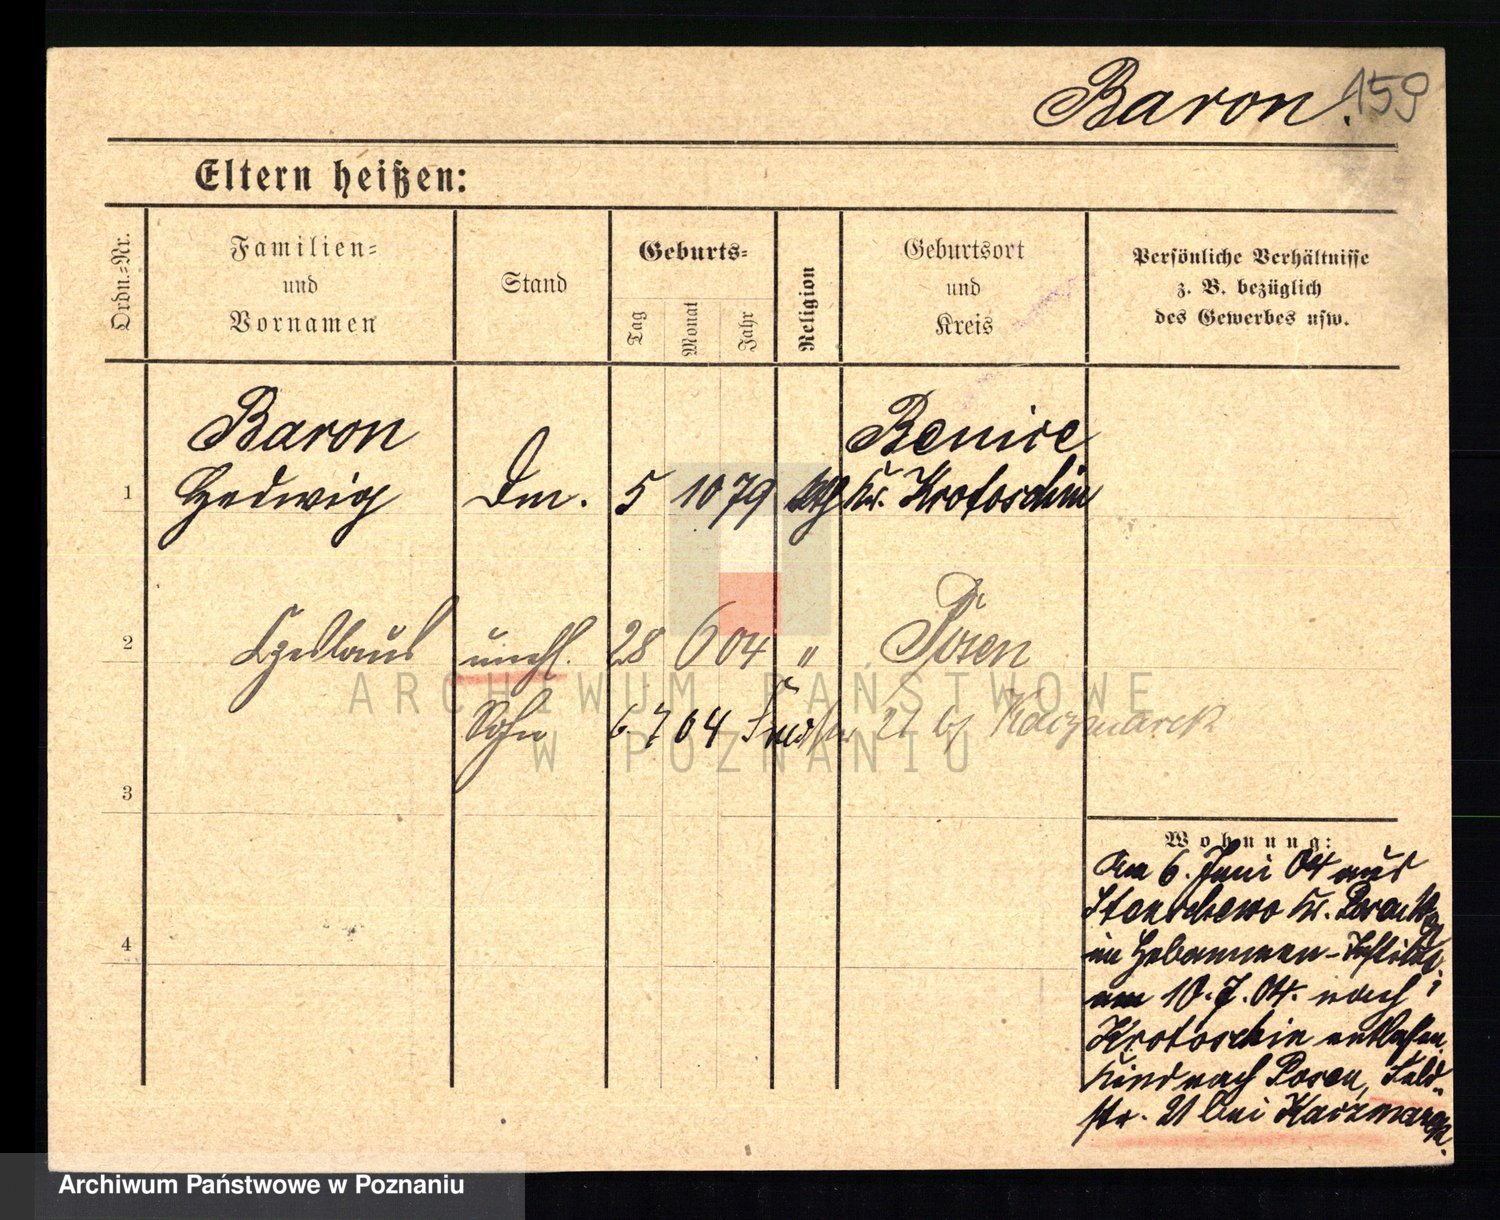 Baron.
159
Eltern heißen:
Ordn.=Nr.
Familien= und Vornamen
Stand
Geburts=
Tag
Monat
Jahr
Religion
Geburtsort und Kreis
Persönliche Verhältnisse z. B. bezüglich des Gewerbes usw.
Baron
Benice
1
Hedwig
Dm.
5
10
79
Kr. Krotoschin
2
unehl.
28
6
04
"
Posen
Sohn
6
7
04
Feldstr 21 bj Kaczmarek
3
4
Wohnung:
Am 6. Juni 04 aus
Kr.
im Hebammen-Institut
am 10.7.04. nach
Krotoschin entlassen
Kind nach Posen, Feld-
str. 21 bei Kaczmarek.
ARCHIWUM PAŃSTWOWE
W POZNANIU
Archiwum Państwowe w Poznaniu